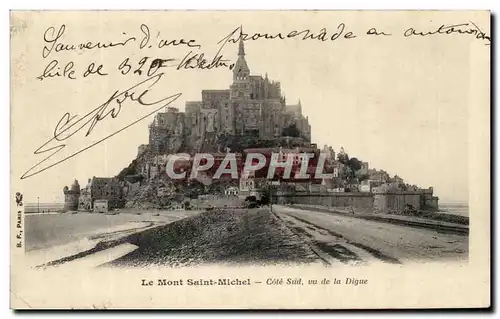 Souvenir d'avec promenade en automo
bile de 320 Kilom
CPARAMA
B. F., PARIS
Le Mont Saint-Michel — Côté Sud, vu de la Digue